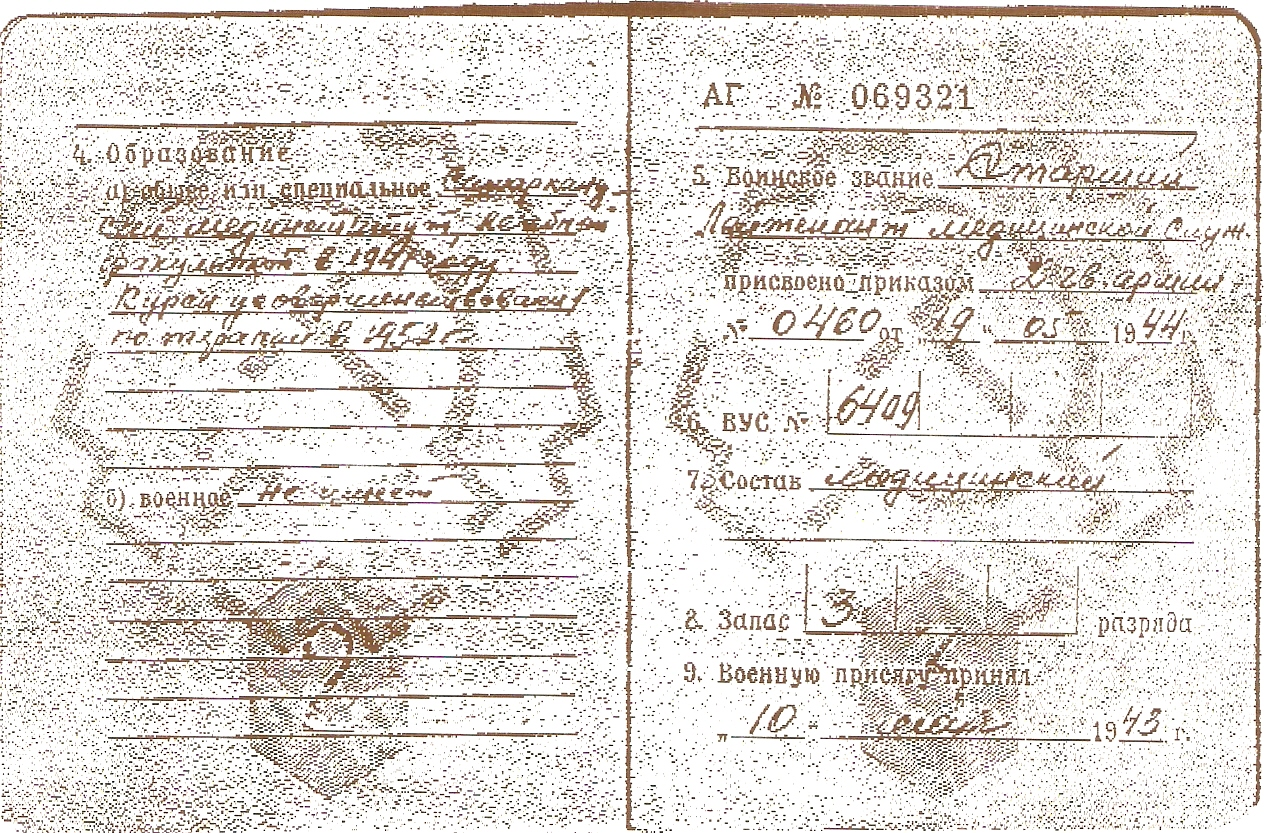 4. Образование
а) общее или специальное Самарканд-
ский мединститут, лечебный
факультет в 1941 году.
Курсы усовершенствования
по терапии в 1952 г.
б) военное не имеет
АГ № 069321
5. Воинское звание Старший
Лейтенант медицинской служ.
присвоено приказом 2 гв. армии
№ 0460 от „19“ 05 1944 г.
6. ВУС № 6409
7. Состав медицинский
8. Запас 3 разряда
9. Военную присягу принял
„10“ мая 1943 г.